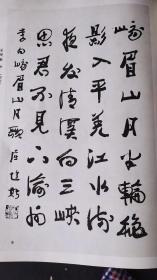 峨眉山月半輪秋
影入平羌江水流
夜發清溪向三峡
思君不見下渝州
李白峨眉山月歌